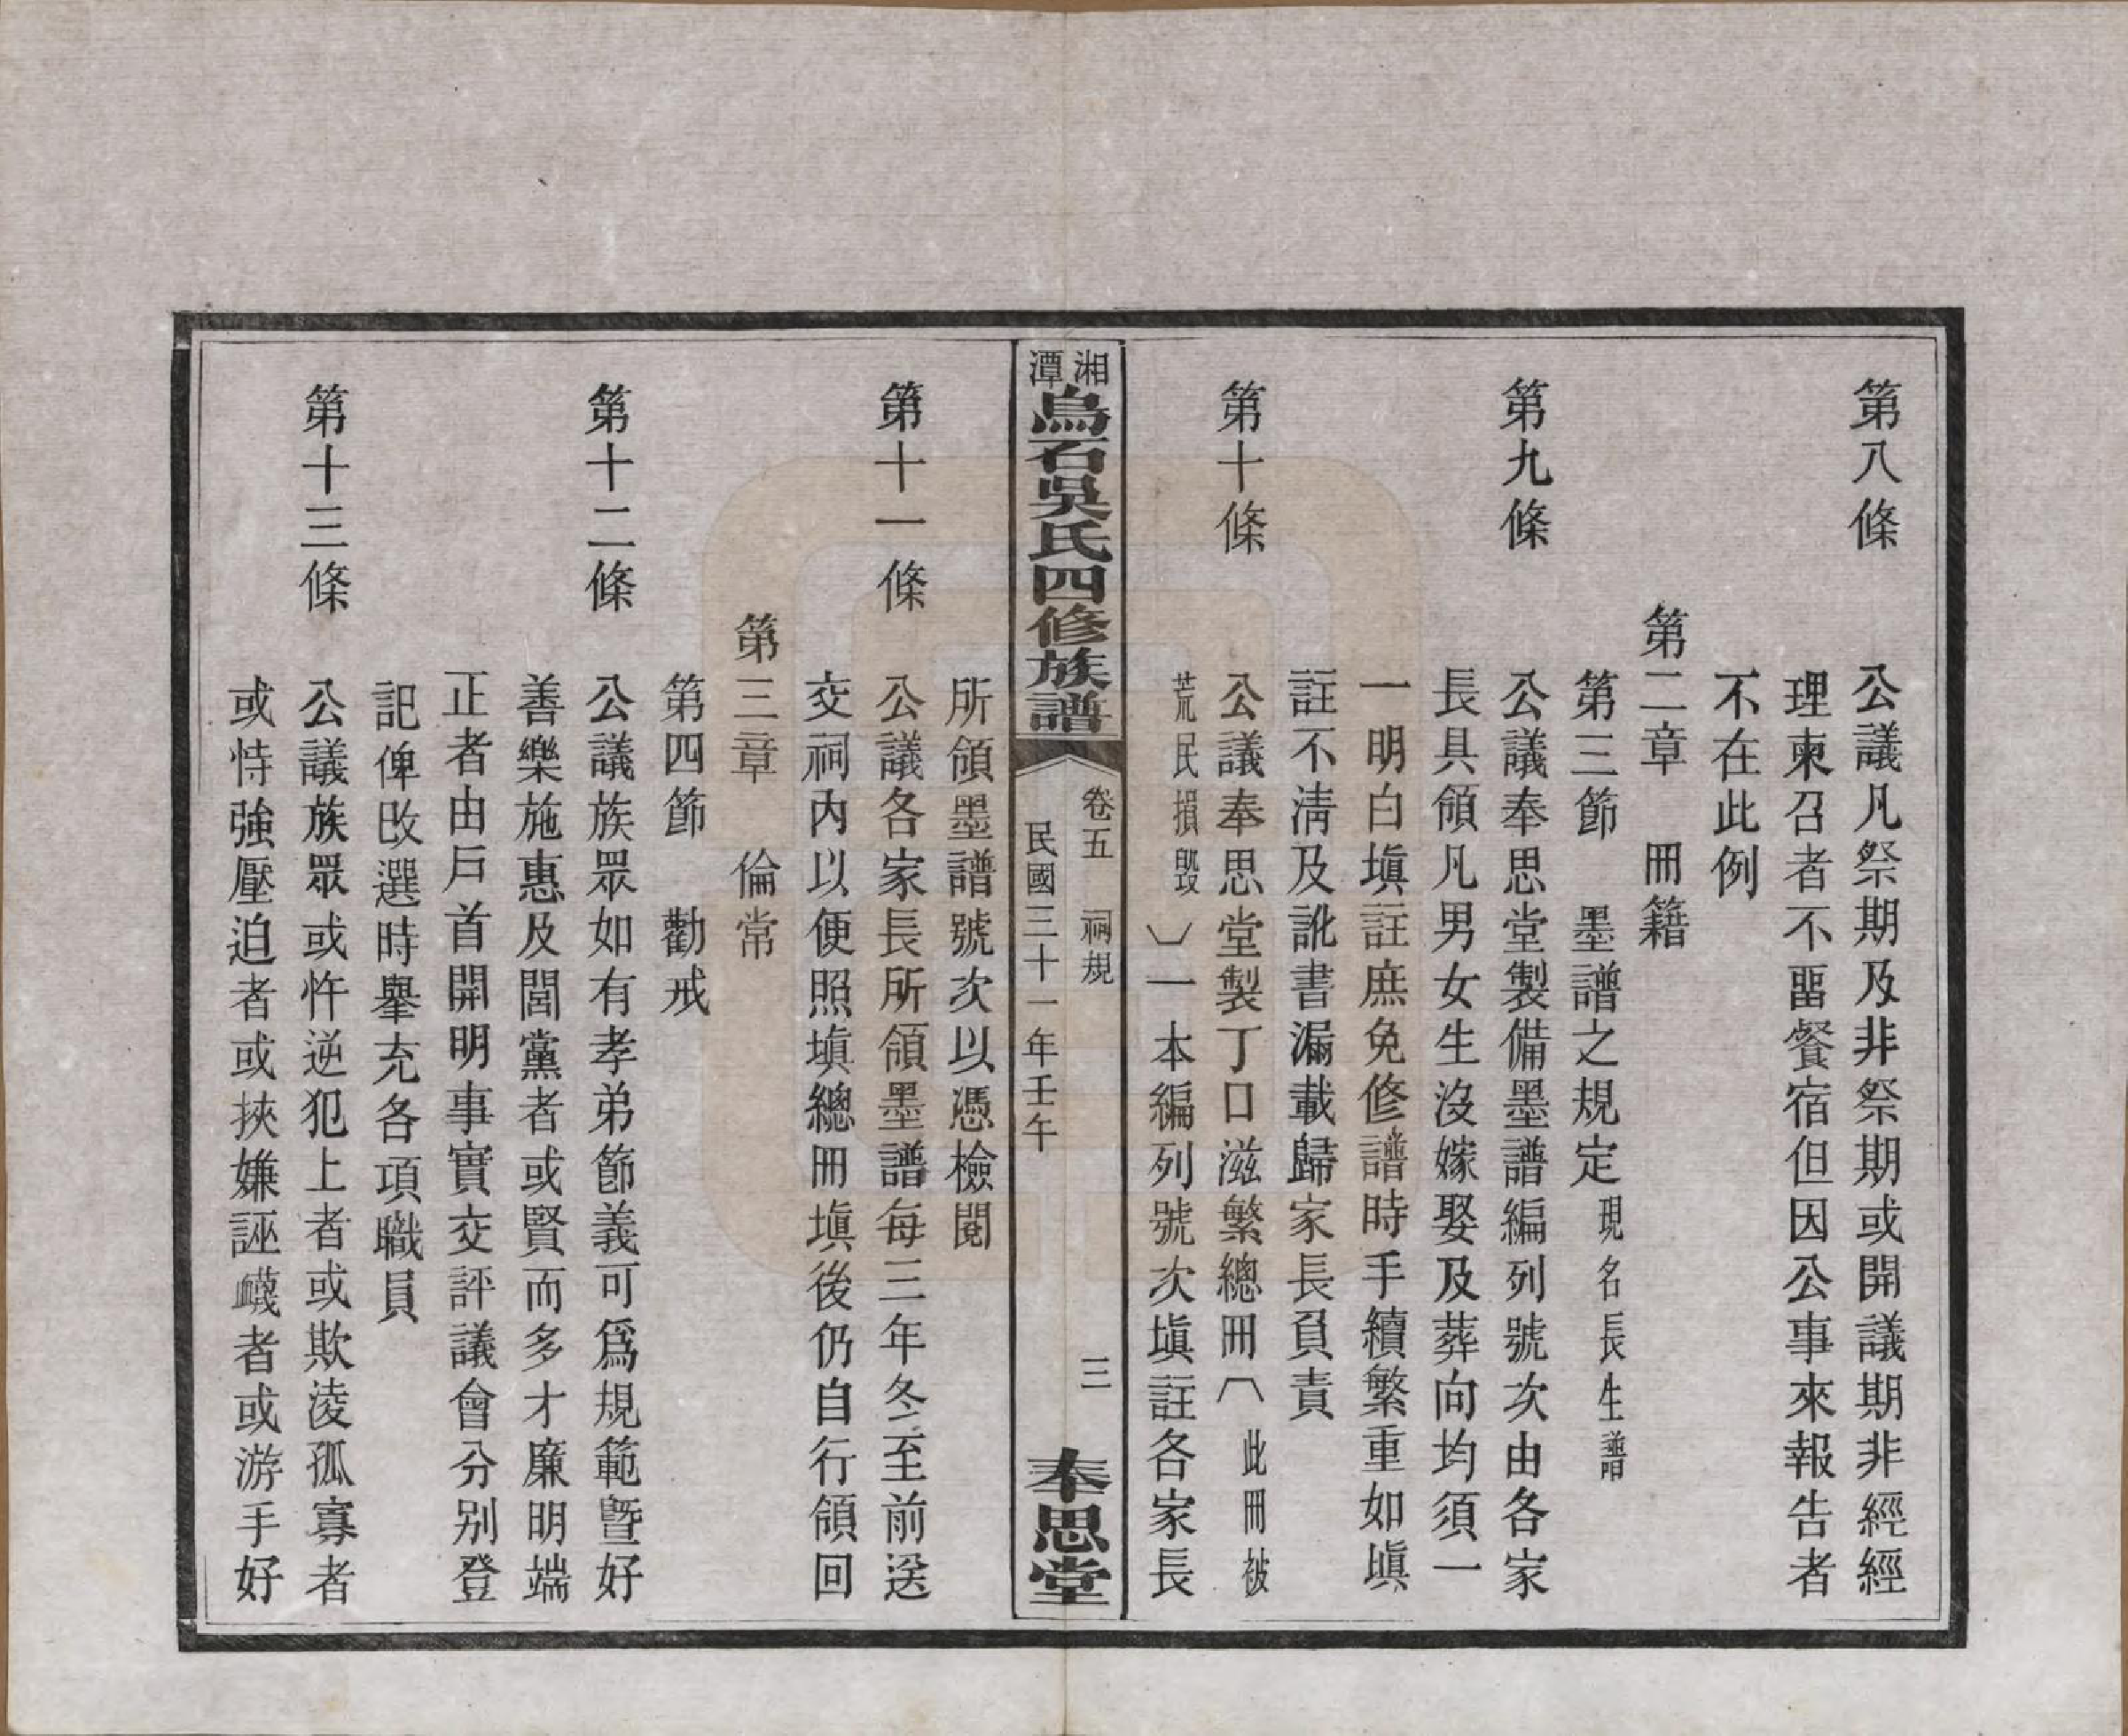 第八條　公議凡祭期及非祭期或開議期非經經
理柬召者不畱餐宿但因公事來報告者
不在此例
第二章　冊籍
第三節　墨譜之規定現名長生譜
第九條　公議奉思堂製備墨譜編列號次由各家
長具領凡男女生沒嫁娶及葬向均須一
一明白塡註庶免修譜時手續繁重如塡
註不淸及訛書漏載歸家長負責
第十條　公議奉思堂製丁口滋繁總冊〔此冊被
荒民損毀〕一本編列號次塡註各家長
湘潭烏石吳氏四修族譜
卷五　祠規　三
民國三十一年壬午
奉思堂
所領墨譜號次以憑檢閱
第十一條　公議各家長所領墨譜每三年冬至前送
交祠內以便照塡總冊塡後仍自行領回
第三章　倫常
第四節　勸戒
第十二條　公議族眾如有孝弟節義可爲規範暨好
善樂施惠及閭黨者或賢而多才廉明端
正者由戶首開明事實交評議會分別登
記俾改選時舉充各項職員
第十三條　公議族眾或忤逆犯上者或欺淩孤寡者
或恃強壓迫者或挾嫌誣衊者或游手好